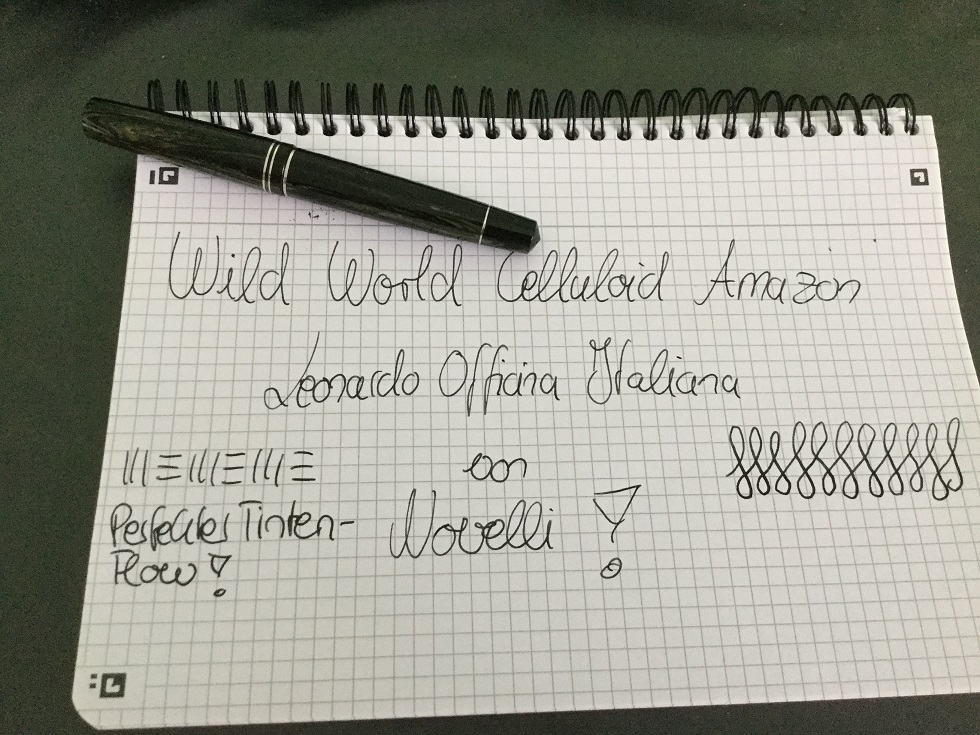 Wild World Celluloid Amazon
Leonardo Officina Italiana
von
Novelli!
Perfektes Tinten-
Flow!